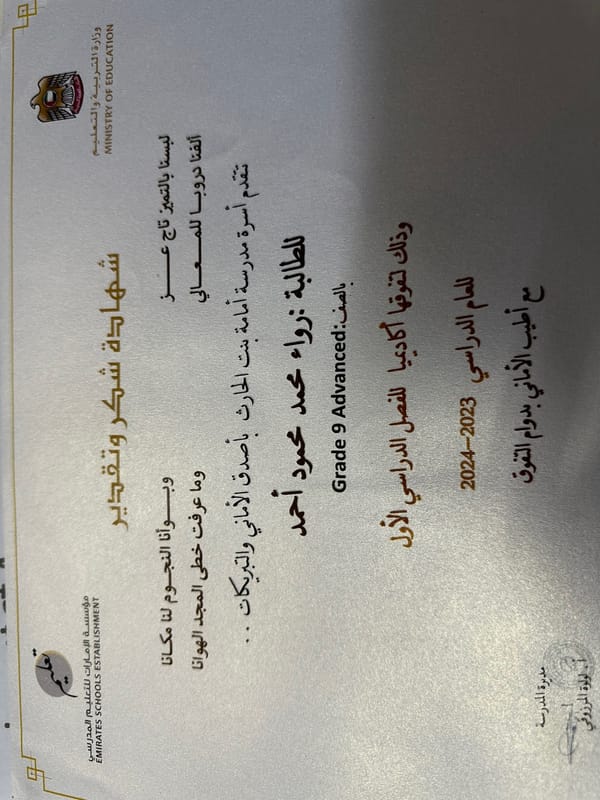 وزارة التربية والتعليم
MINISTRY OF EDUCATION
تعليم
مؤسسة الإمارات للتعليم المدرسي
EMIRATES SCHOOLS ESTABLISHMENT
شهادة شكر وتقدير
لبسنا بالتميز تاج عـــــز وبــوأنا النجـوم لنا مكـانا
ألفنا دروبـا للمـــعــالي وما عرفت خطى المجد الهوانا
تتقدم أسرة مدرسة أمامة بنت الحارث بأصدق الأماني والتبريكات ...
للطالبة :رواء محمد محمود أحمد
بالصف:Grade 9 Advanced
وذلك لتفوقها أكاديميا للفصل الدراسي الأول
للعام الدراسي 2023–2024
مع أطيب الأماني بدوام التفوق
مديرة المدرسة
المرزوقي